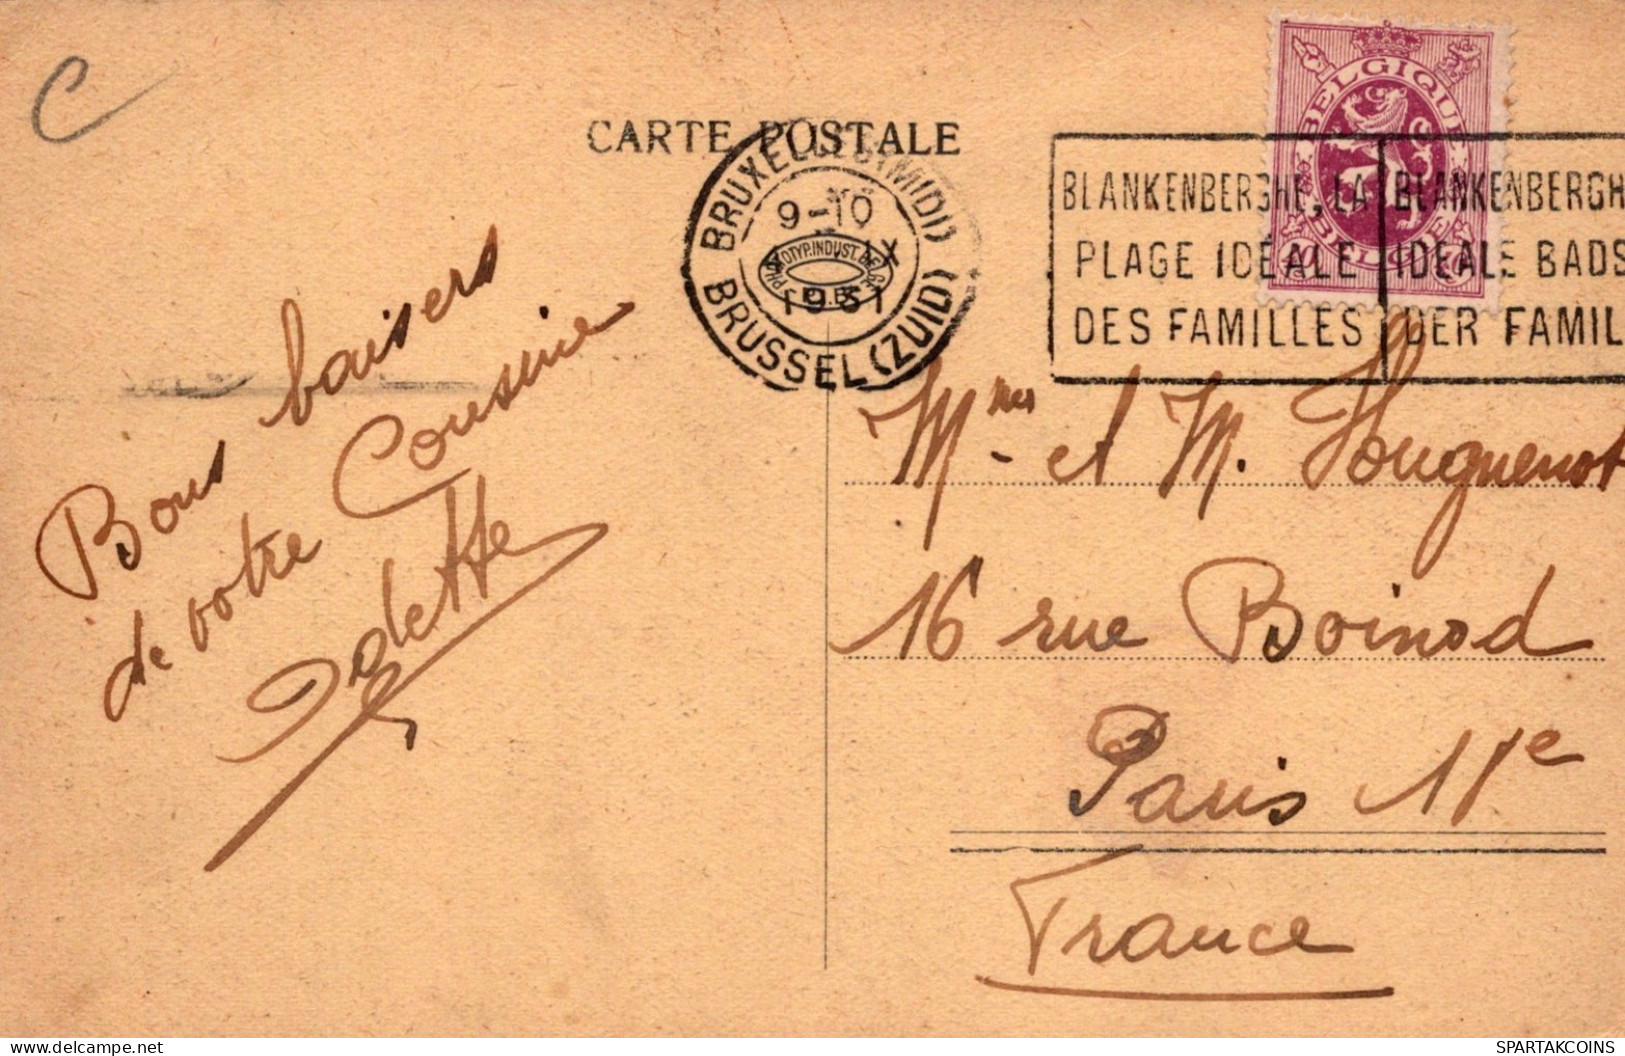 C
CARTE POSTALE
BRUXELLES (MIDI)
9-10
IX
1931
BRUSSEL (ZUID)
PHOTOTYP. INDUST. BELGE
BELGIQUE
BELGIË
40 40
BLANKENBERGHE, LA
PLAGE IDÉALE
DES FAMILLES
BLANKENBERGH
IDEALE BADS
DER FAMIL
Bons baisers
de votre Cousine
Odette
Mme et M. Houguenot
16 rue Boinod
Paris 18e
France
delcampe.net
SPARTAKCOINS